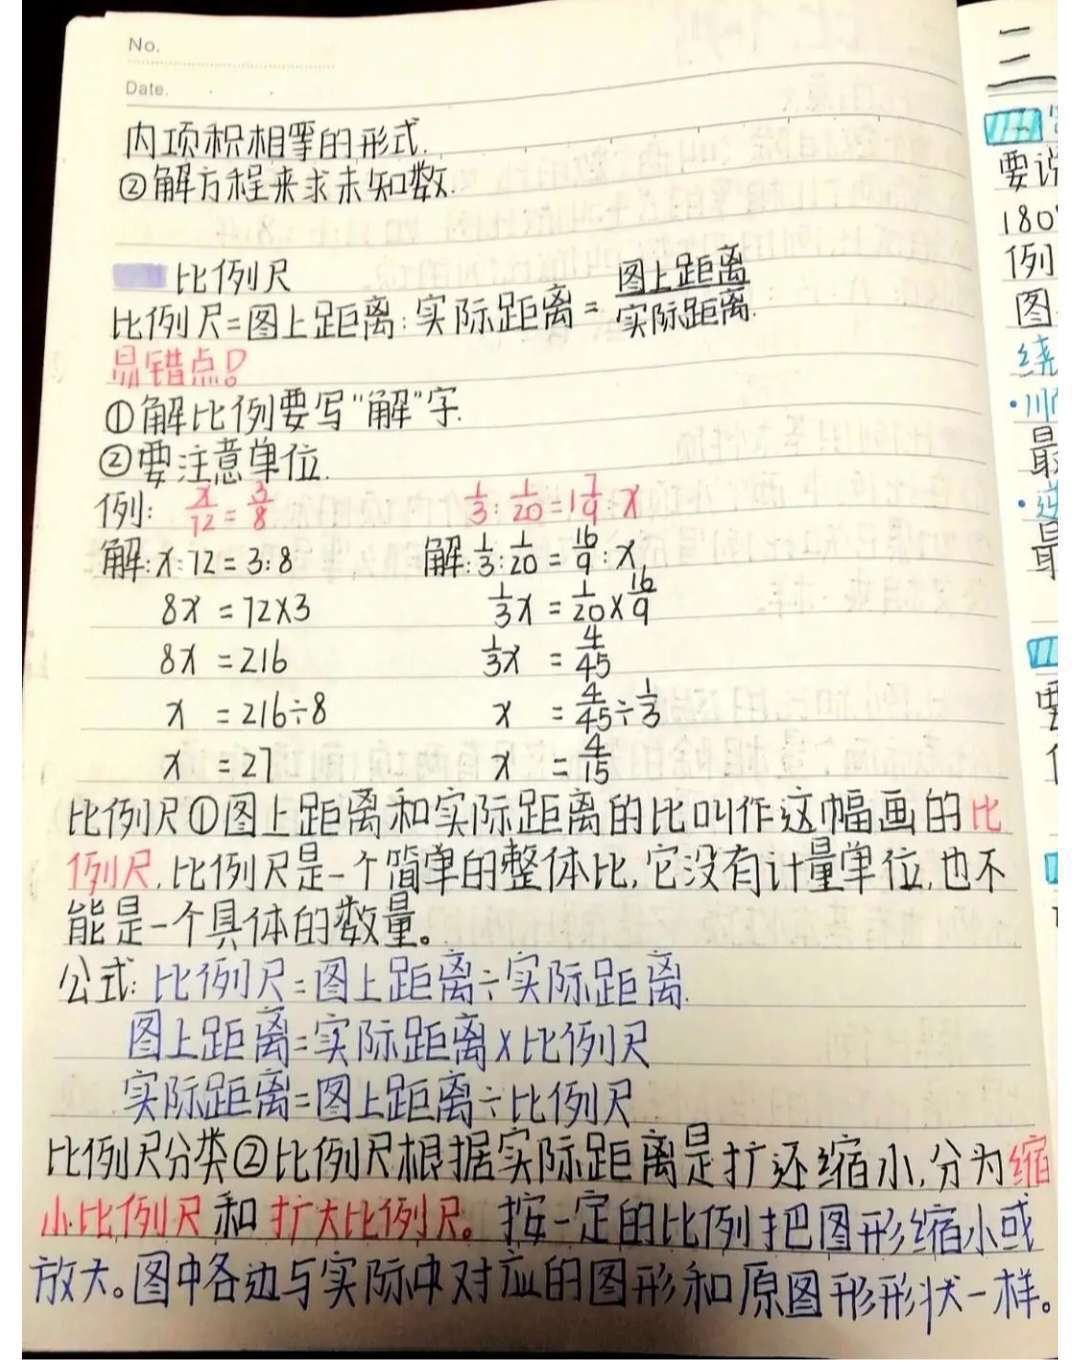 No.
Date.
内项积相等的形式.
②解方程来求未知数.
比例尺
比例尺=图上距离:实际距离=图上距离/实际距离.
易错点!
①解比例要写"解"字.
②要注意单位.
例: x/12=3/8 1/3:1/20=1 7/9 x
解:x:72=3:8 解:1/3:1/20=16/9:x
8x=72×3 1/3x=1/20×16/9
8x=216 1/3x=4/45
x=216÷8 x=4/45÷1/3
x=27 x=4/15
比例尺①图上距离和实际距离的比叫作这幅画的比
例尺.比例尺是一个简单的整体比,它没有计量单位,也不
能是一个具体的数量。
公式:比例尺=图上距离÷实际距离.
图上距离=实际距离×比例尺
实际距离=图上距离÷比例尺
比例尺分类②比例尺根据实际距离是扩还缩小,分为缩
小比例尺和扩大比例尺。按一定的比例把图形缩小或
放大。图中各边与实际中对应的图形和原图形形状一样。
三
要说
180°
例
图
绕
·顺
最
·逆
最
要